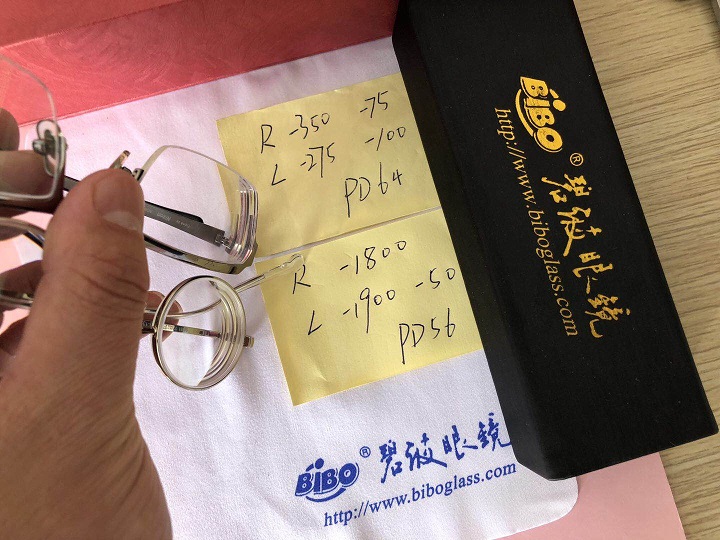 R -350 -75
L -275 -100
PD64
R -1800
L -1900 -50
PD56
BiBO®碧波眼鏡
http://www.biboglass.com
BiBO®碧波眼鏡
http://www.biboglass.com